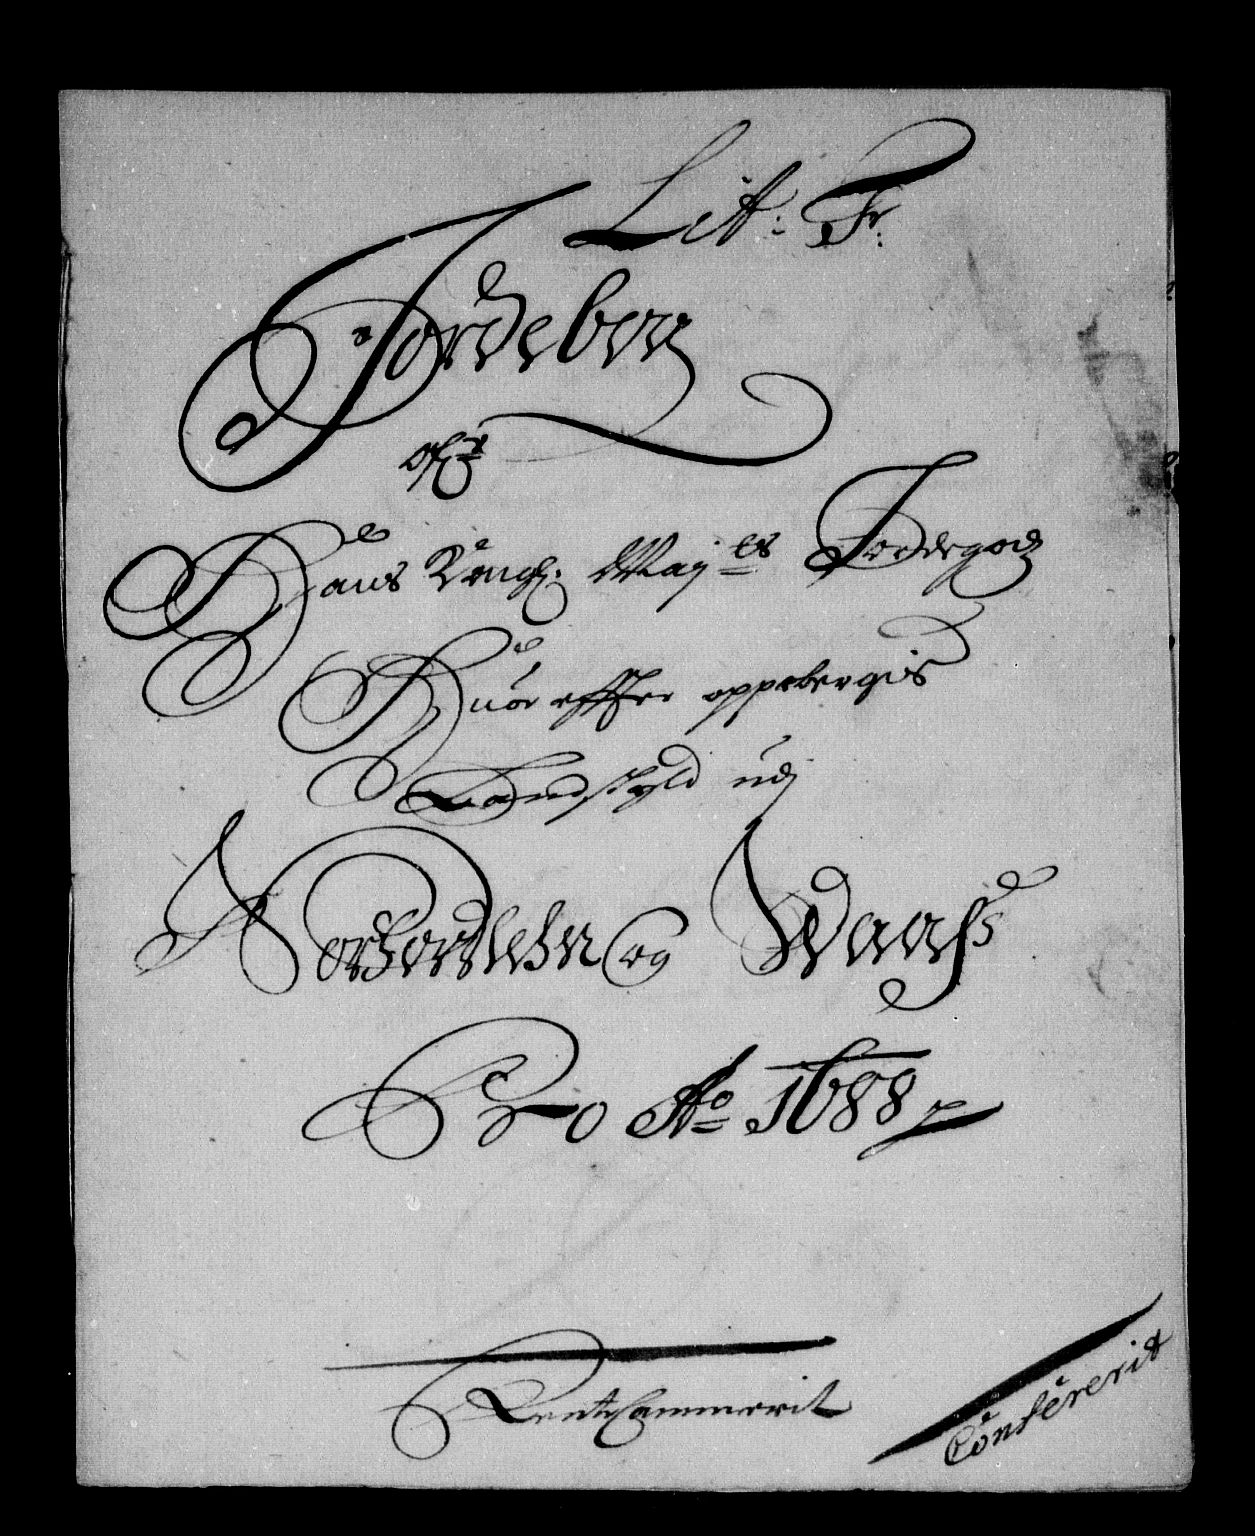 Litt: Fr:
Jordebog
ofr
Hans Kongl: Mayts Jordegods
Huor effter oppebergis
Landskyld udj
Norhordlehn og Waass
Pro Ao 1688
RenteCammerit
Conferrerit